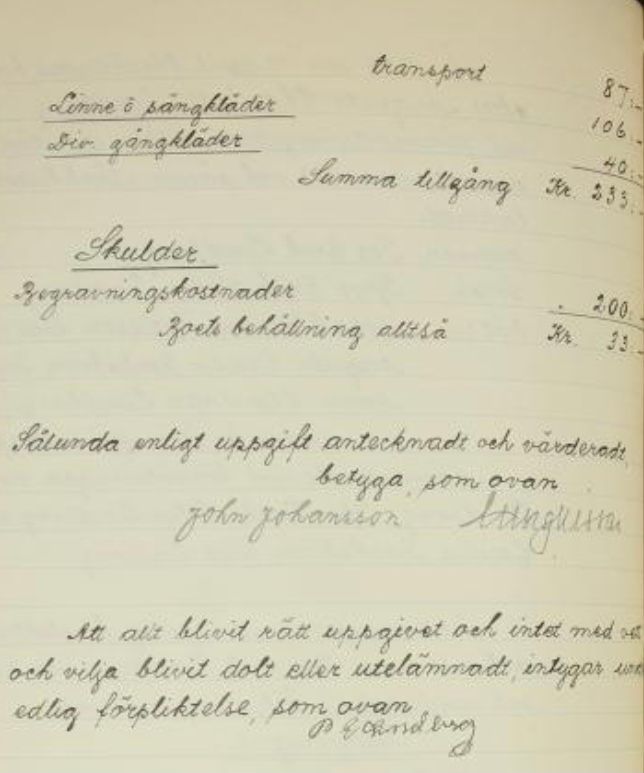 transport 87:-
Linne ö sängkläder 106.-
Div. gångkläder 40:-
Summa tillgång Kr. 233:-
Skulder.
Begravningskostnader 200:-
Boets behållning alltså Kr. 33:-
Sålunda enligt uppgift antecknadt och värderadt,
betyga, som ovan
John Johansson
Att allt blivit rätt uppgivet och intet med vet
och vilja blivit dolt eller utelämnadt, intygar
edlig förpliktelse, som ovan
P E Lindberg